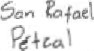 San Rafael
Petcal